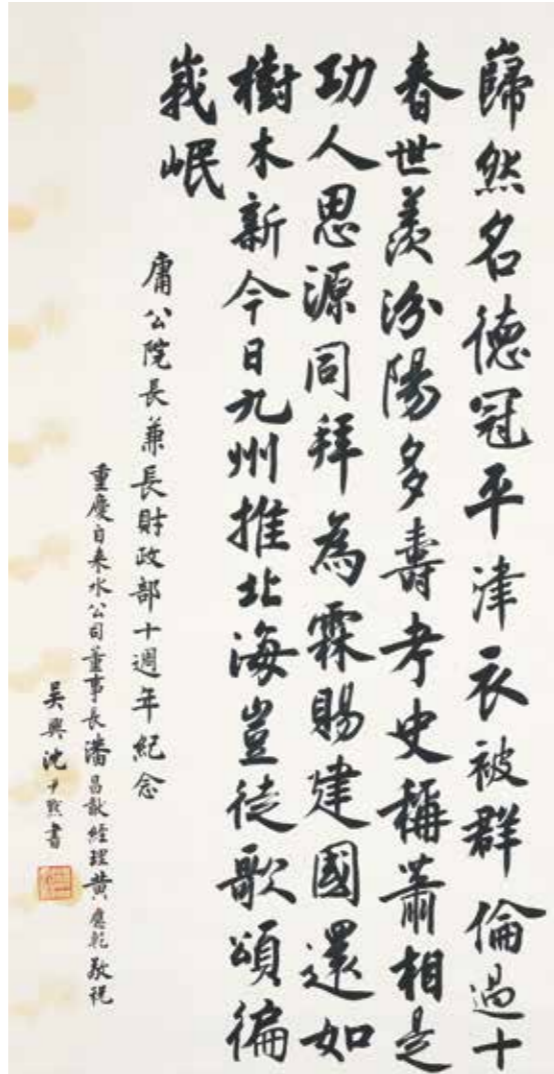 巋然名德冠平津衣被群倫過十
春世羨汾陽多壽考史稱蕭相是
功人思源同拜為霖賜建國還如
樹木新今日九州推北海豈徒歌頌徧
峩岷
庸公院長兼長財政部十週年紀念
重慶自來水公司董事長潘昌猷經理黃應乾敬祝
吳興沈尹默書